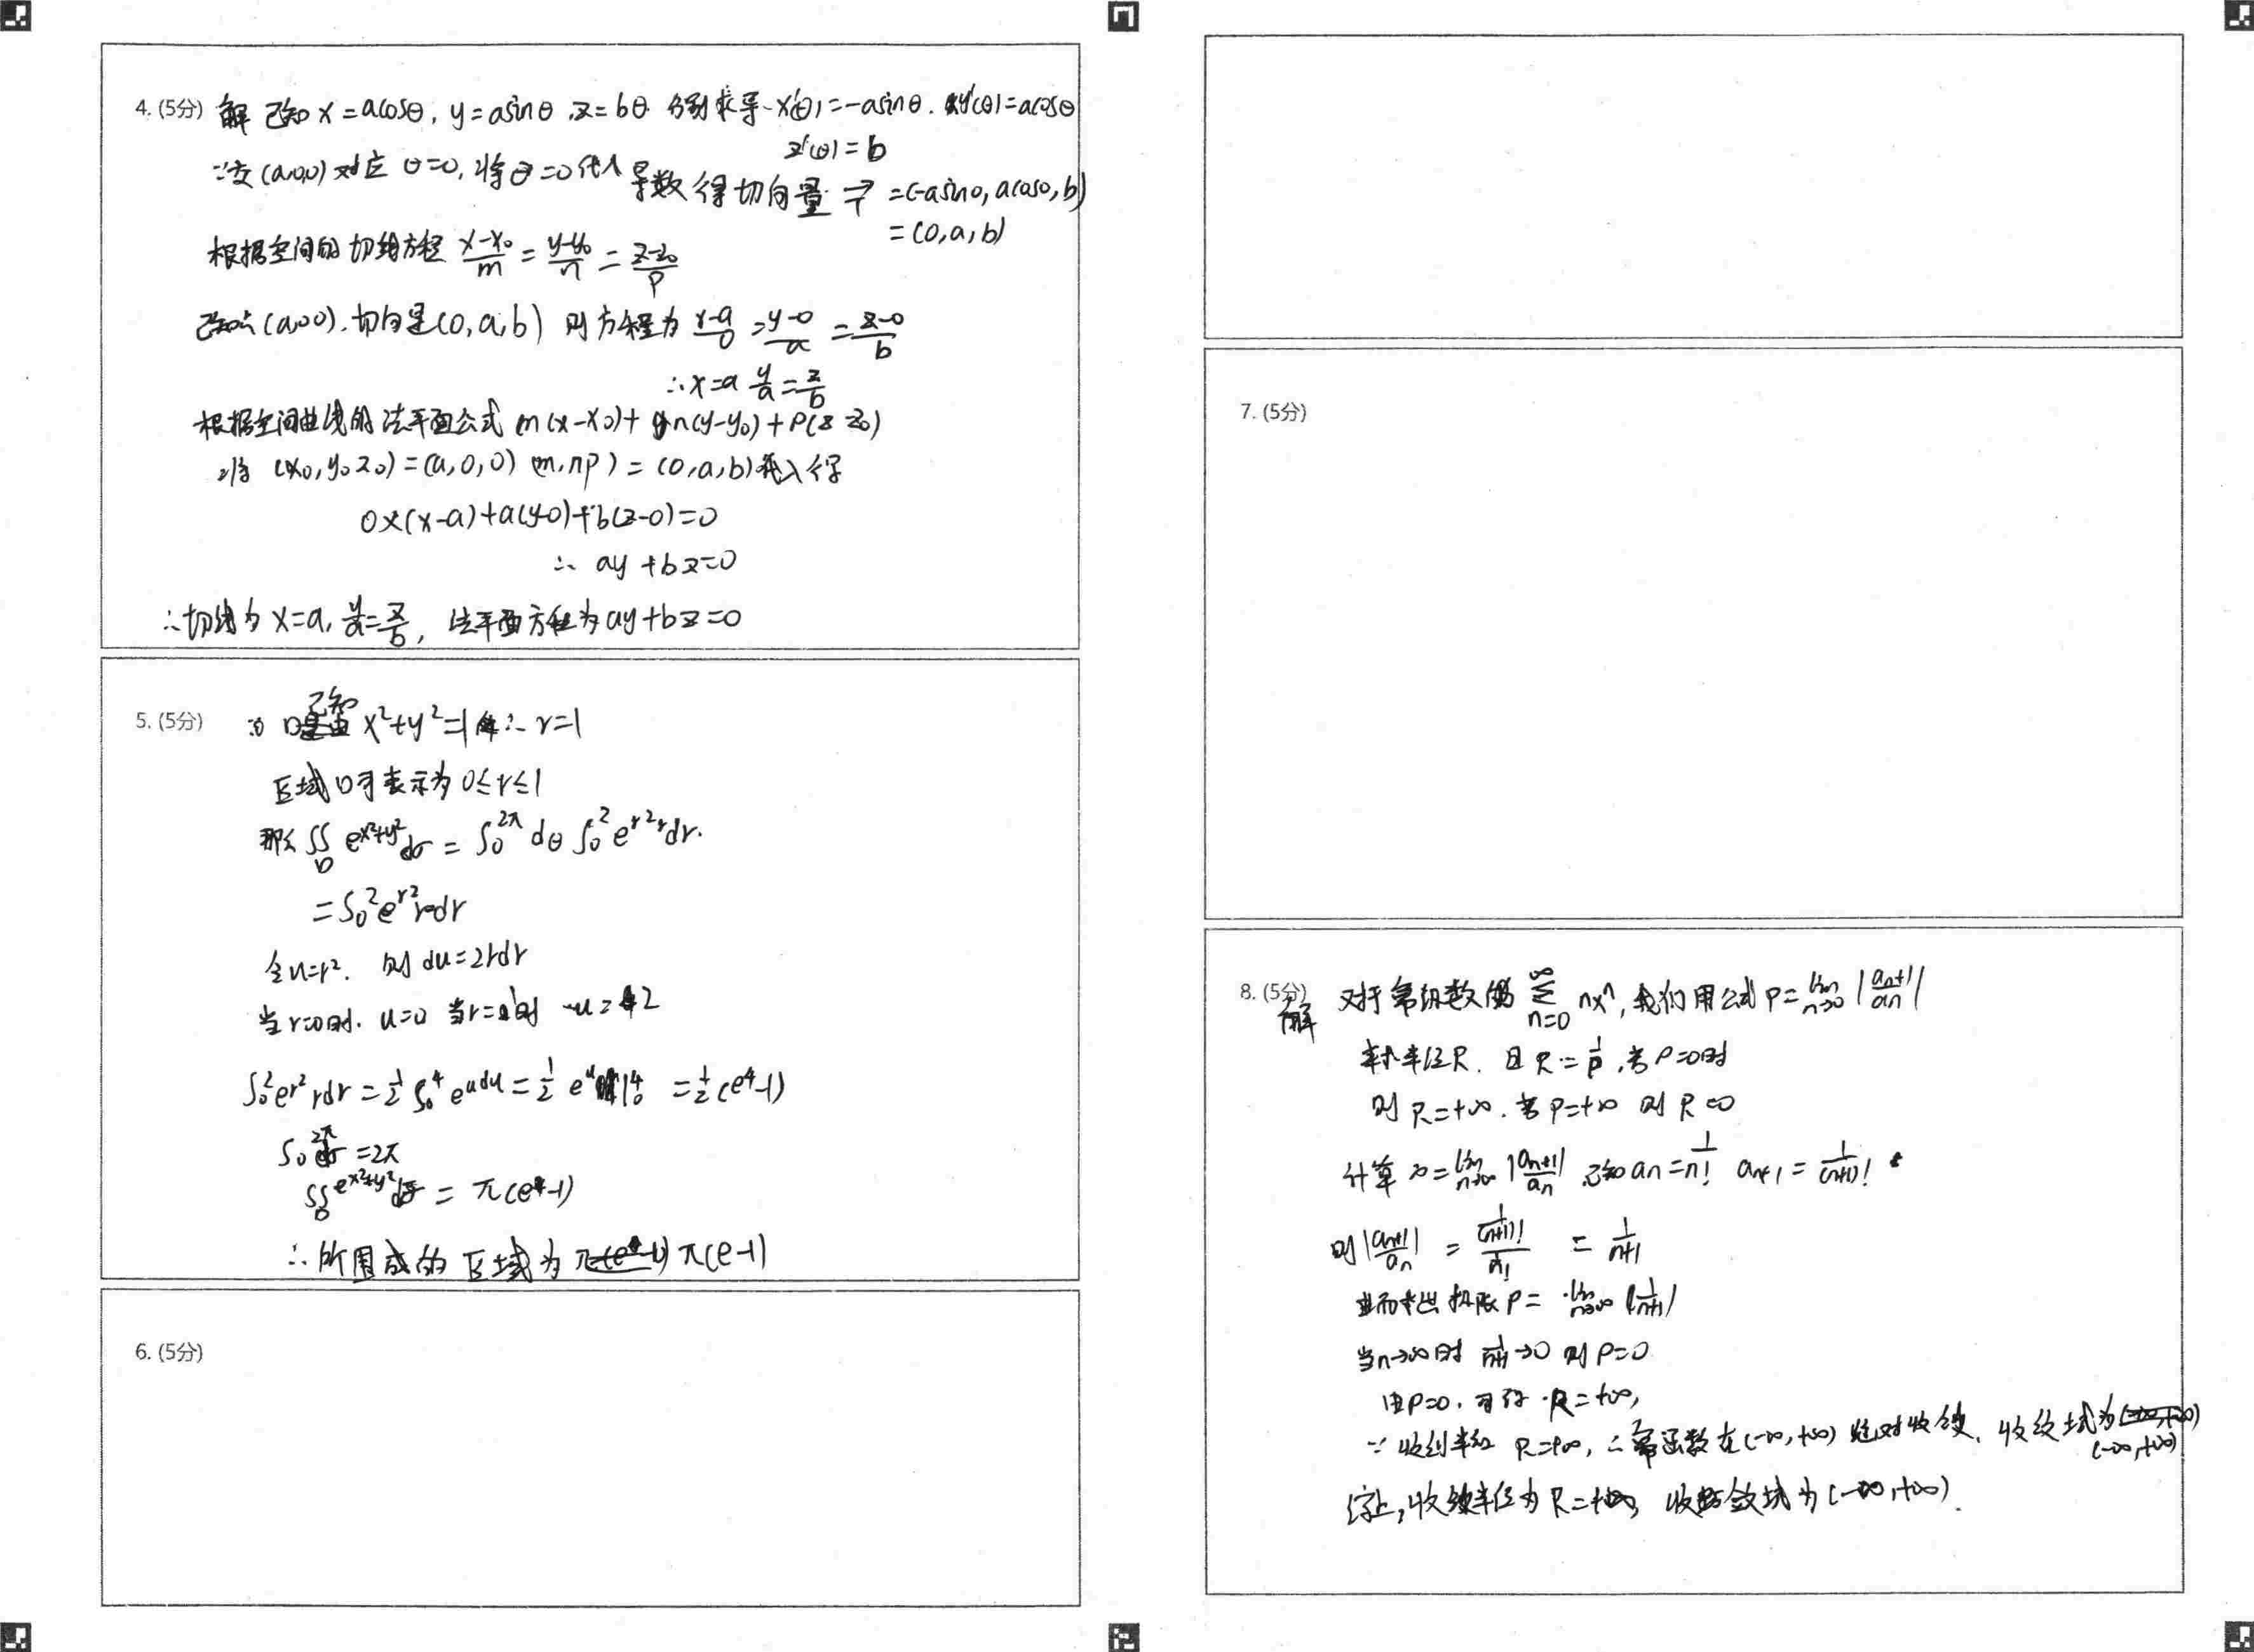 4. (5分) 解 已知 x=acosθ, y=asinθ, z=bθ 分别求导 x'(θ)=-asinθ. y'(θ)=acosθ
z'(θ)=b
∵交(a,0,0)对应 θ=0, 将θ=0代入导数得切向量 T=(-asin0, acos0, b)
=(0,a,b)
根据空间的切线方程 (x-x₀)/m = (y-y₀)/n = (z-z₀)/p
已知点(a,0,0). 切向量(0,a,b) 则方程为 (x-a)/0 = (y-0)/a = (z-0)/b
∴x=a y/a=z/b
根据空间曲线的法平面公式 m(x-x₀)+n(y-y₀)+p(z z₀)
将 (x₀,y₀z₀)=(a,0,0) (m,np)=(0,a,b)代入得
0×(x-a)+a(y-0)+b(z-0)=0
∴ ay+bz=0
∴切线为 x=a, y/a=z/b, 法平面方程为ay+bz=0
5. (5分) D已知 x²+y²=1 ∴r=1
区域D可表示为 0≤r≤1
那么 ∬_D e^(x²+y²) dσ = ∫₀^2π dθ ∫₀² e^(r²) r dr.
=∫₀² e^(r²) r dr
令u=r². 则 du=2rdr
当r=0时. u=0 当r=1时 u=2
∫₀² e^(r²) rdr = 1/2 ∫₀⁴ e^u du = 1/2 e^u |₀⁴ = 1/2(e⁴-1)
∫₀^2π dσ =2π
∬_D e^(x²+y²) dσ = π(e⁴-1)
∴所围成的区域为 π(e-1)
6. (5分)
7. (5分)
8. (5分)
解 对于幂级数 ∑_{n=0}^∞ nxⁿ, 我们用公式 ρ=lim_{n→∞} |a_{n+1}/a_n|
求半径R. 且 R=1/ρ, 若ρ=0时
则 R=+∞. 若ρ=+∞ 则 R=0
计算 ρ=lim_{n→∞} |a_{n+1}/a_n| 已知 a_n=1/n! a_{n+1}=1/(n+1)!
则|a_{n+1}/a_n| = (1/(n+1)!)/(1/n!) = 1/(n+1)
求出极限 ρ= lim_{n→∞} |1/(n+1)|
当n→∞时 1/(n+1)→0 则ρ=0
由ρ=0. 可得 R=+∞,
∵收敛半径 R=+∞, ∴幂函数在(-∞,+∞) 绝对收敛. 收敛域为
(-∞,+∞)
综上, 收敛半径为R=+∞, 收敛域为(-∞,+∞).